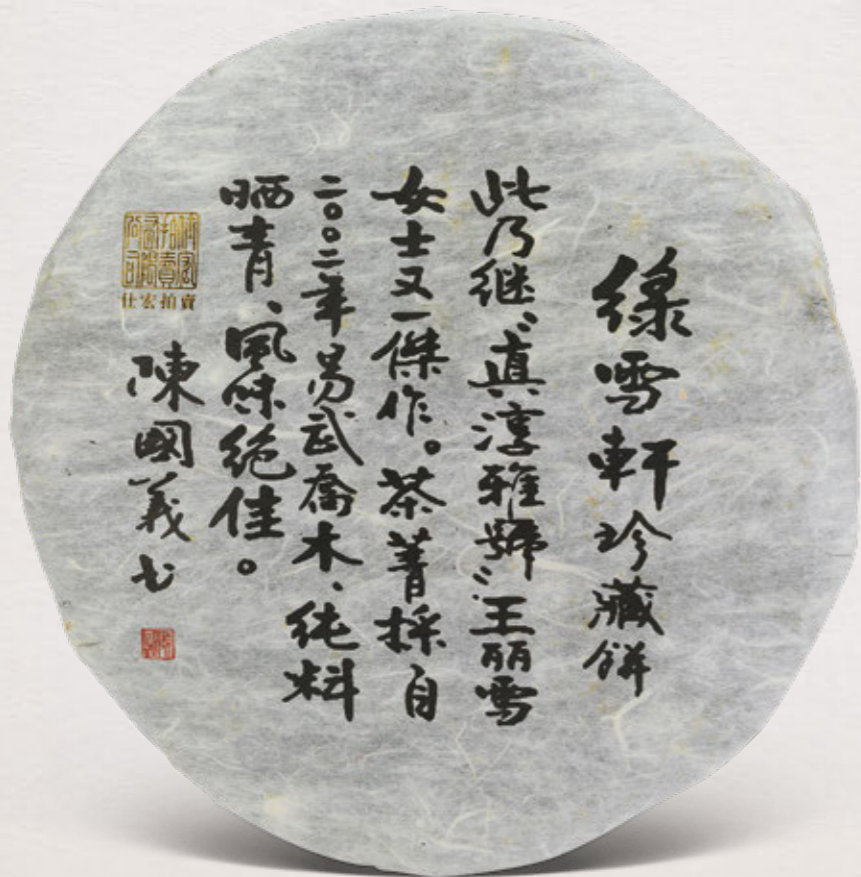 綠雪軒珍藏餅
此乃继“真淳雅號”王丽雪
女士又一傑作。茶菁採自
二〇〇二年易武喬木、纯料
晒青、風味绝佳。
陳國義书
仕宏拍賣